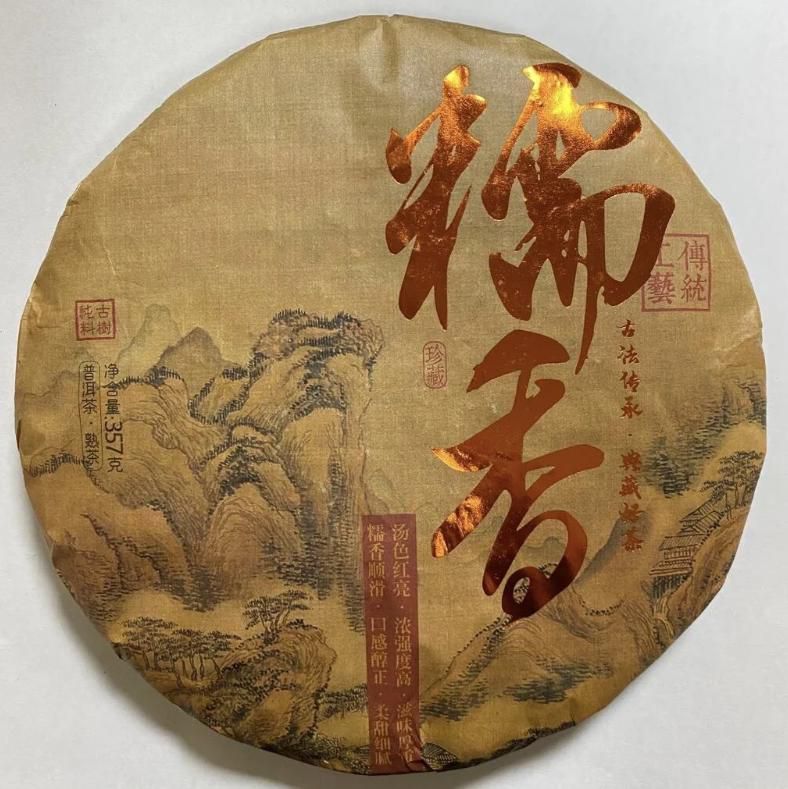 糯香
傳統
工藝
古法传承·典藏好茶
珍藏
汤色红亮·浓强度高·滋味厚
糯香顺滑·口感醇正·柔甜细腻
古樹
純料
净含量:357克
普洱茶·熟茶